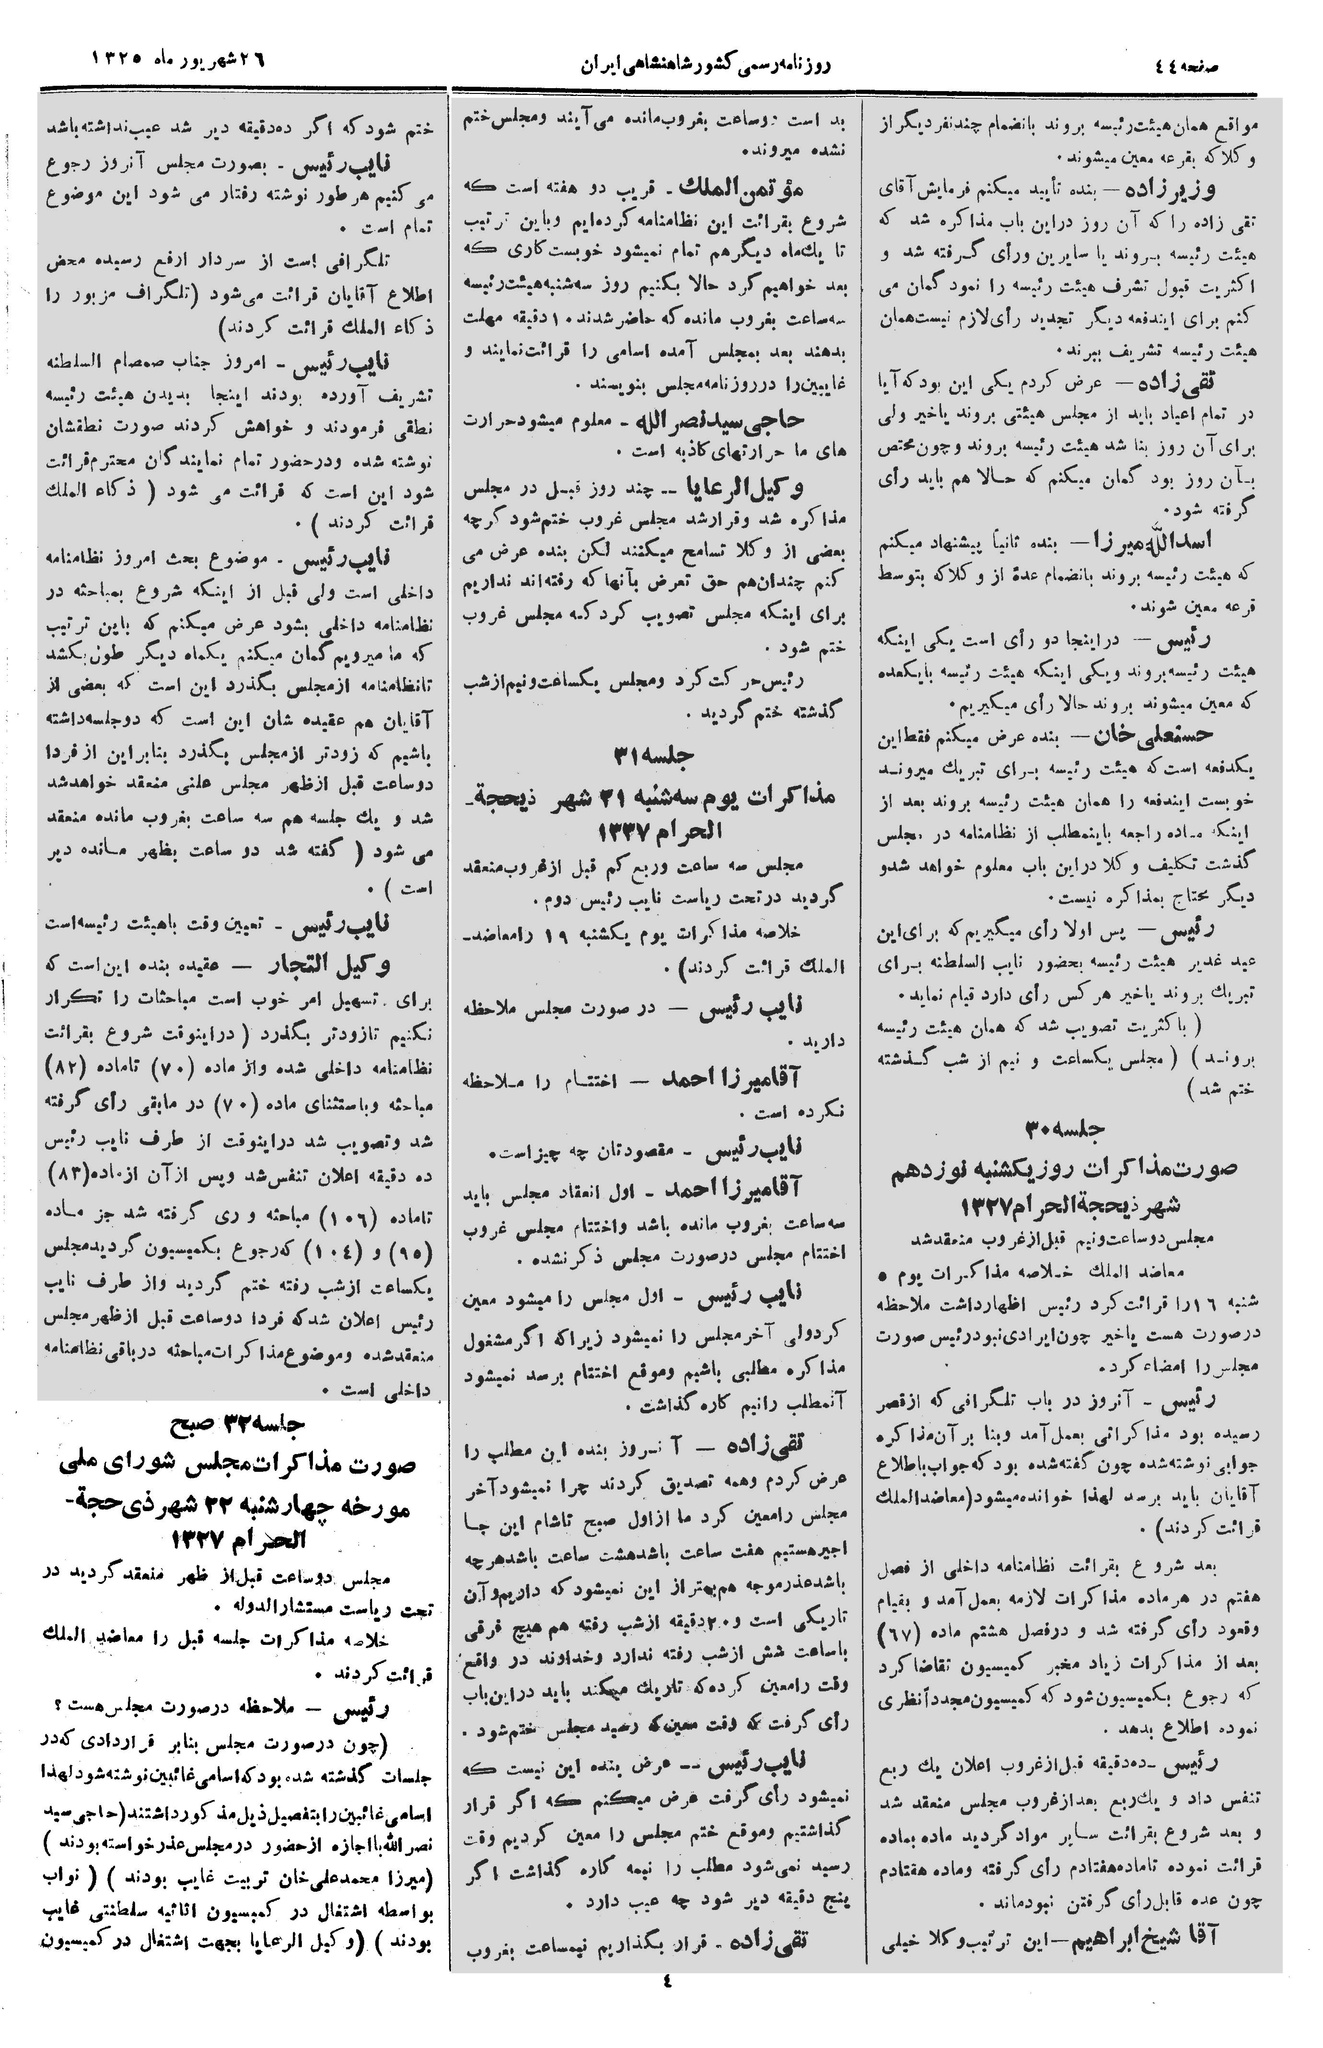 صفحه ۴۴
روزنامه رسمی کشور شاهنشاهی ایران
۲۶ شهریور ماه ۱۳۲۵
مواقع همان هیئت رئیسه بروند بانضمام چند نفر دیگر از
وکلا که بقرعه معین میشوند.
وزیرزاده — بنده تأیید میکنم فرمایش آقای
تقی زاده را که آن روز دراین باب مذاکره شد که
هیئت رئیسه بروند یا سایرین ورأی گرفته شد و
اکثریت قبول تشرف هیئت رئیسه را نمود گمان می
کنم برای ایندفعه دیگر تجدید رأی لازم نیست همان
هیئت رئیسه تشریف ببرند.
تقی‌زاده — عرض کردم یکی این بود که آیا
در تمام اعیاد باید از مجلس هیئتی بروند یاخیر ولی
برای آن روز بنا شد هیئت رئیسه بروند وچون مختص
بآن روز بود گمان میکنم که حالا هم باید رأی
گرفته شود.
اسدالله میرزا — بنده ثانیاً پیشنهاد میکنم
که هیئت رئیسه بروند بانضمام عدهٔ از وکلا که بتوسط
قرعه معین شوند.
رئیس — دراینجا دو رأی است یکی اینکه
هیئت رئیسه بروند ویکی اینکه هیئت رئیسه بایکعده
که معین میشوند بروند حالا رأی میگیریم.
حسنعلی خان — بنده عرض میکنم فقط این
یکدفعه است که هیئت رئیسه برای تبریك میروند
خوبست ایندفعه را همان هیئت رئیسه بروند بعد از
اینکه ماده راجعه باینمطلب از نظامنامه در مجلس
گذشت تکلیف وکلا دراین باب معلوم خواهد شد و
دیگر محتاج بمذاکره نیست.
رئیس — پس اولا رأی میگیریم که برای این
عید غدیر هیئت رئیسه بحضور نایب السلطنه برای
تبریك بروند یاخیر هرکس رأی دارد قیام نماید.
( باکثریت تصویب شد که همان هیئت رئیسه
بروند ) ( مجلس یکساعت و نیم از شب گذشته
ختم شد )
جلسه ۳۰
صورت مذاکرات روز یکشنبه نوزدهم
شهر ذیحجة الحرام ۱۳۲۷
مجلس دو ساعت ونیم قبل از غروب منعقد شد
معاضد الملك خلاصه مذاکرات یوم ۵
شنبه ۱۶ را قرائت کرد رئیس اظهارداشت ملاحظه
درصورت هست یاخیر چون ایرادی نبود رئیس صورت
مجلس را امضاء کرد.
رئیس - آنروز در باب تلگرافی که از قصر
رسیده بود مذاکراتی بعمل آمد وبنا بر آن مذاکره
جوابی نوشته شده چون گفته شده بود که جواب باطلاع
آقایان باید برسد لهذا خوانده میشود (معاضدالملك
قرائت کردند).
بعد شروع بقرائت نظامنامه داخلی از فصل
هفتم در هر ماده مذاکرات لازمه بعمل آمد و بقیام
وقعود رأی گرفته شد و درفصل هشتم ماده (۶۷)
بعد از مذاکرات زیاد مخبر کمیسیون تقاضا کرد
که رجوع بکمیسیون شود که کمیسیون مجدداً نظری
نموده اطلاع بدهد.
رئیس - ده دقیقه قبل از غروب اعلان یك ربع
تنفس داد و یك ربع بعد از غروب مجلس منعقد شد
و بعد شروع بقرائت سایر مواد گردید ماده بماده
قرائت نموده تاماده هفتادم رأی گرفته وماده هفتادم
چون عده قابل رأی گرفتن نبود ماند.
آقا شیخ ابراهیم — این ترتیب وکلا خیلی
بد است دوساعت بغروب مانده می آیند و مجلس ختم
نشده میروند.
مؤتمن الملك - قریب دو هفته است که
شروع بقرائت این نظامنامه کرده ایم وباین ترتیب
تا یك ماه دیگر هم تمام نمیشود خوبست کاری که
بعد خواهیم کرد حالا بکنیم روز سه شنبه هیئت رئیسه
سه ساعت بغروب مانده که حاضر شدند ۱۰ دقیقه مهلت
بدهند بعد بمجلس آمده اسامی را قرائت نمایند و
غایبین را در روزنامه مجلس بنویسند.
حاجی سید نصرالله - معلوم میشود حرارت
های ما حرارتهای کاذبه است.
وکیل الرعایا — چند روز قبل در مجلس
مذاکره شد وقرارشد مجلس غروب ختم شود گرچه
بعضی از وکلا تسامح میکنند لکن بنده عرض می
کنم چندان هم حق تعرض بآنها که رفته اند نداریم
برای اینکه مجلس تصویب کرد که مجلس غروب
ختم شود.
رئیس حرکت کرد ومجلس یکساعت ونیم از شب
گذشته ختم گردید.
جلسه ۳۱
مذاکرات یوم سه شنبه ۲۱ شهر ذیحجة-
الحرام ۱۳۲۷
مجلس سه ساعت وربع کم قبل از غروب منعقد
گردید درتحت ریاست نایب رئیس دوم.
خلاصه مذاکرات یوم یکشنبه ۱۹ را معاضد-
الملك قرائت کردند).
نایب رئیس — در صورت مجلس ملاحظه
دارید.
آقامیرزا احمد — اختتام را ملاحظه
نکرده است.
نایب رئیس - مقصودتان چه چیز است.
آقامیرزا احمد - اول انعقاد مجلس باید
سه ساعت بغروب مانده باشد واختتام مجلس غروب
اختتام مجلس درصورت مجلس ذکر نشده.
نایب رئیس - اول مجلس را میشود معین
کرد ولی آخر مجلس را نمیشود زیرا که اگر مشغول
مذاکره مطلبی باشیم وموقع اختتام برسد نمیشود
آنمطلب را نیم کاره گذاشت.
تقی زاده — آنروز بنده این مطلب را
عرض کردم وهمه تصدیق کردند چرا نمیشود آخر
مجلس را معین کرد ما از اول صبح تا شام این جا
اجیر هستیم هفت ساعت باشد هشت ساعت باشد هرچه
باشد عذر موجه هم بهتر از این نمیشود که داریم وآن
تاریکی است و ۲۰ دقیقه ازشب رفته هم هیچ فرقی
باساعت شش ازشب رفته ندارد وخداوند در واقع
وقت را معین کرده که تاریك میکند باید دراین باب
رأی گرفت که وقت معین که رسید مجلس ختم شود.
نایب رئیس — عرض بنده این نیست که
نمیشود رأی گرفت عرض میکنم که اگر قرار
گذاشتیم وموقع ختم مجلس را معین کردیم وقت
رسید نمی شود مطلب را نیمه کاره گذاشت اگر
پنج دقیقه دیر شود چه عیب دارد.
تقی زاده - قرار بگذاریم نیمساعت بغروب
ختم شود که اگر ده دقیقه دیر شد عیب نداشته باشد
نایب رئیس - بصورت مجلس آنروز رجوع
می کنیم هر طور نوشته رفتار می شود این موضوع
تمام است.
تلگرافی است از سردار ارفع رسیده محض
اطلاع آقایان قرائت می شود (تلگراف مزبور را
ذکاء الملك قرائت کردند)
نایب رئیس - امروز جناب صمصام السلطنه
تشریف آورده بودند اینجا بدیدن هیئت رئیسه
نطقی فرمودند و خواهش کردند صورت نطقشان
نوشته شده ودرحضور تمام نمایندگان محترم قرائت
شود این است که قرائت می شود ( ذکاء الملك
قرائت کردند ).
نایب رئیس - موضوع بحث امروز نظامنامه
داخلی است ولی قبل از اینکه شروع بمباحثه در
نظامنامه داخلی بشود عرض میکنم که باین ترتیب
که ما میرویم گمان میکنم یکماه دیگر طول بکشد
تا نظامنامه از مجلس بگذرد این است که بعضی از
آقایان هم عقیده شان این است که دو جلسه داشته
باشیم که زودتر از مجلس بگذرد بنابراین از فردا
دوساعت قبل از ظهر مجلس علنی منعقد خواهد شد
شد و یك جلسه هم سه ساعت بغروب مانده منعقد
می شود ( گفته شد دو ساعت بظهر مانده دیر
است ).
نایب رئیس - تعیین وقت با هیئت رئیسه است
وکیل التجار — عقیده بنده این است که
برای تسهیل امر خوب است مباحثات را تکرار
نکنیم تا زودتر بگذرد ( دراینوقت شروع بقرائت
نظامنامه داخلی شده واز ماده (۷۰) تاماده (۸۲)
مباحثه وباستثنای ماده (۷۰) در مابقی رأی گرفته
شد وتصویب شد دراینوقت از طرف نایب رئیس
ده دقیقه اعلان تنفس شد وپس از آن از ماده (۸۳)
تاماده (۱۰۶) مباحثه و ری گرفته شد جز ماده
(۹۵) و (۱۰۴) که رجوع بکمیسیون گردید مجلس
یکساعت ازشب رفته ختم گردید واز طرف نایب
رئیس اعلان شد که فردا دو ساعت قبل از ظهر مجلس
منعقد شده وموضوع مذاکرات مباحثه درباقی نظامنامه
داخلی است.
جلسه ۳۲ صبح
صورت مذاکرات مجلس شورای ملی
مورخه چهارشنبه ۲۲ شهر ذی حجة-
الحرام ۱۳۲۷
مجلس دو ساعت قبل از ظهر منعقد گردید در
تحت ریاست مستشار الدوله.
خلاصه مذاکرات جلسه قبل را معاضد الملك
قرائت کردند.
رئیس — ملاحظه درصورت مجلس هست؟
(چون درصورت مجلس بنابر قراردادی که در
جلسات گذشته شده بود که اسامی غائبین نوشته شود لهذا
اسامی غائبین را بتفصیل ذیل مذکور داشتند (حاجی سید
نصرالله با اجازه از حضور در مجلس عذر خواسته بودند )
(میرزا محمدعلی خان تربیت غایب بودند ) ( نواب
بواسطه اشتغال در کمیسیون اثاثیه سلطنتی غایب
بودند ) (وکیل الرعایا بجهت اشتغال در کمیسیون
۴